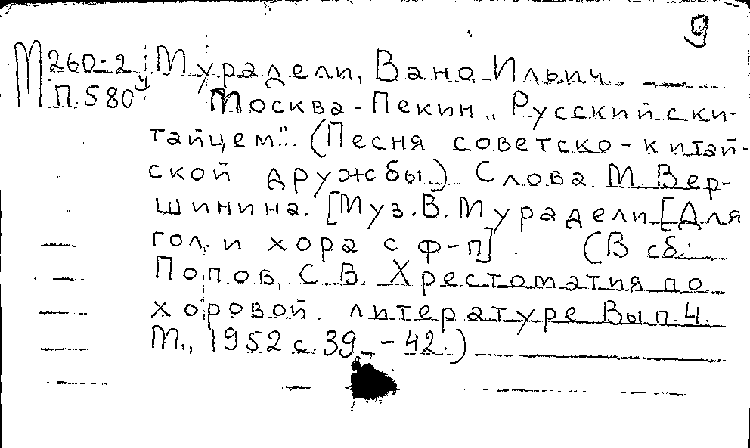 9
М 260-2 Мурадели, Вано Ильич
П.580 Москва-Пекин „Русский с ки-
тайцем". (Песня советско-китай-
ской дружбы.) Слова М. Вер-
шинина. [Муз. В. Мурадели [Для
гол. и хора с ф-п] (В сб.:
Попов, С. В. Хрестоматия по
хоровой литературе Вып 4.
М., 1952 с. 39 - 42.)